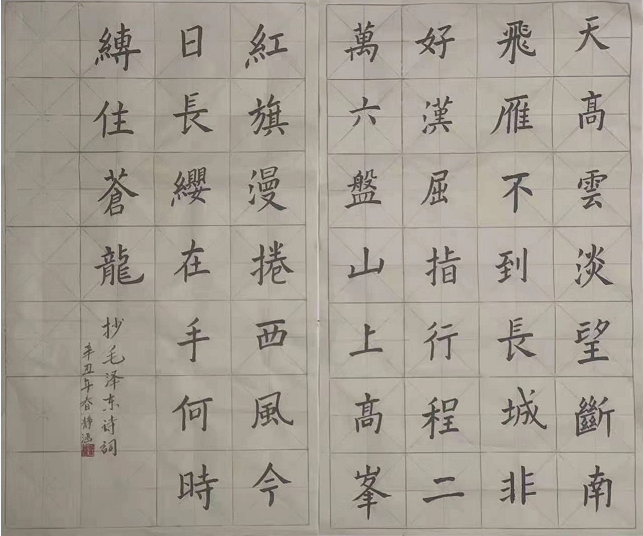 天高雲淡望斷南
飛雁不到長城非
好漢屈指行程二
萬六盤山上高峯
紅旗漫捲西風今
日長纓在手何時
縛住蒼龍
抄毛泽东诗词
辛丑年春静